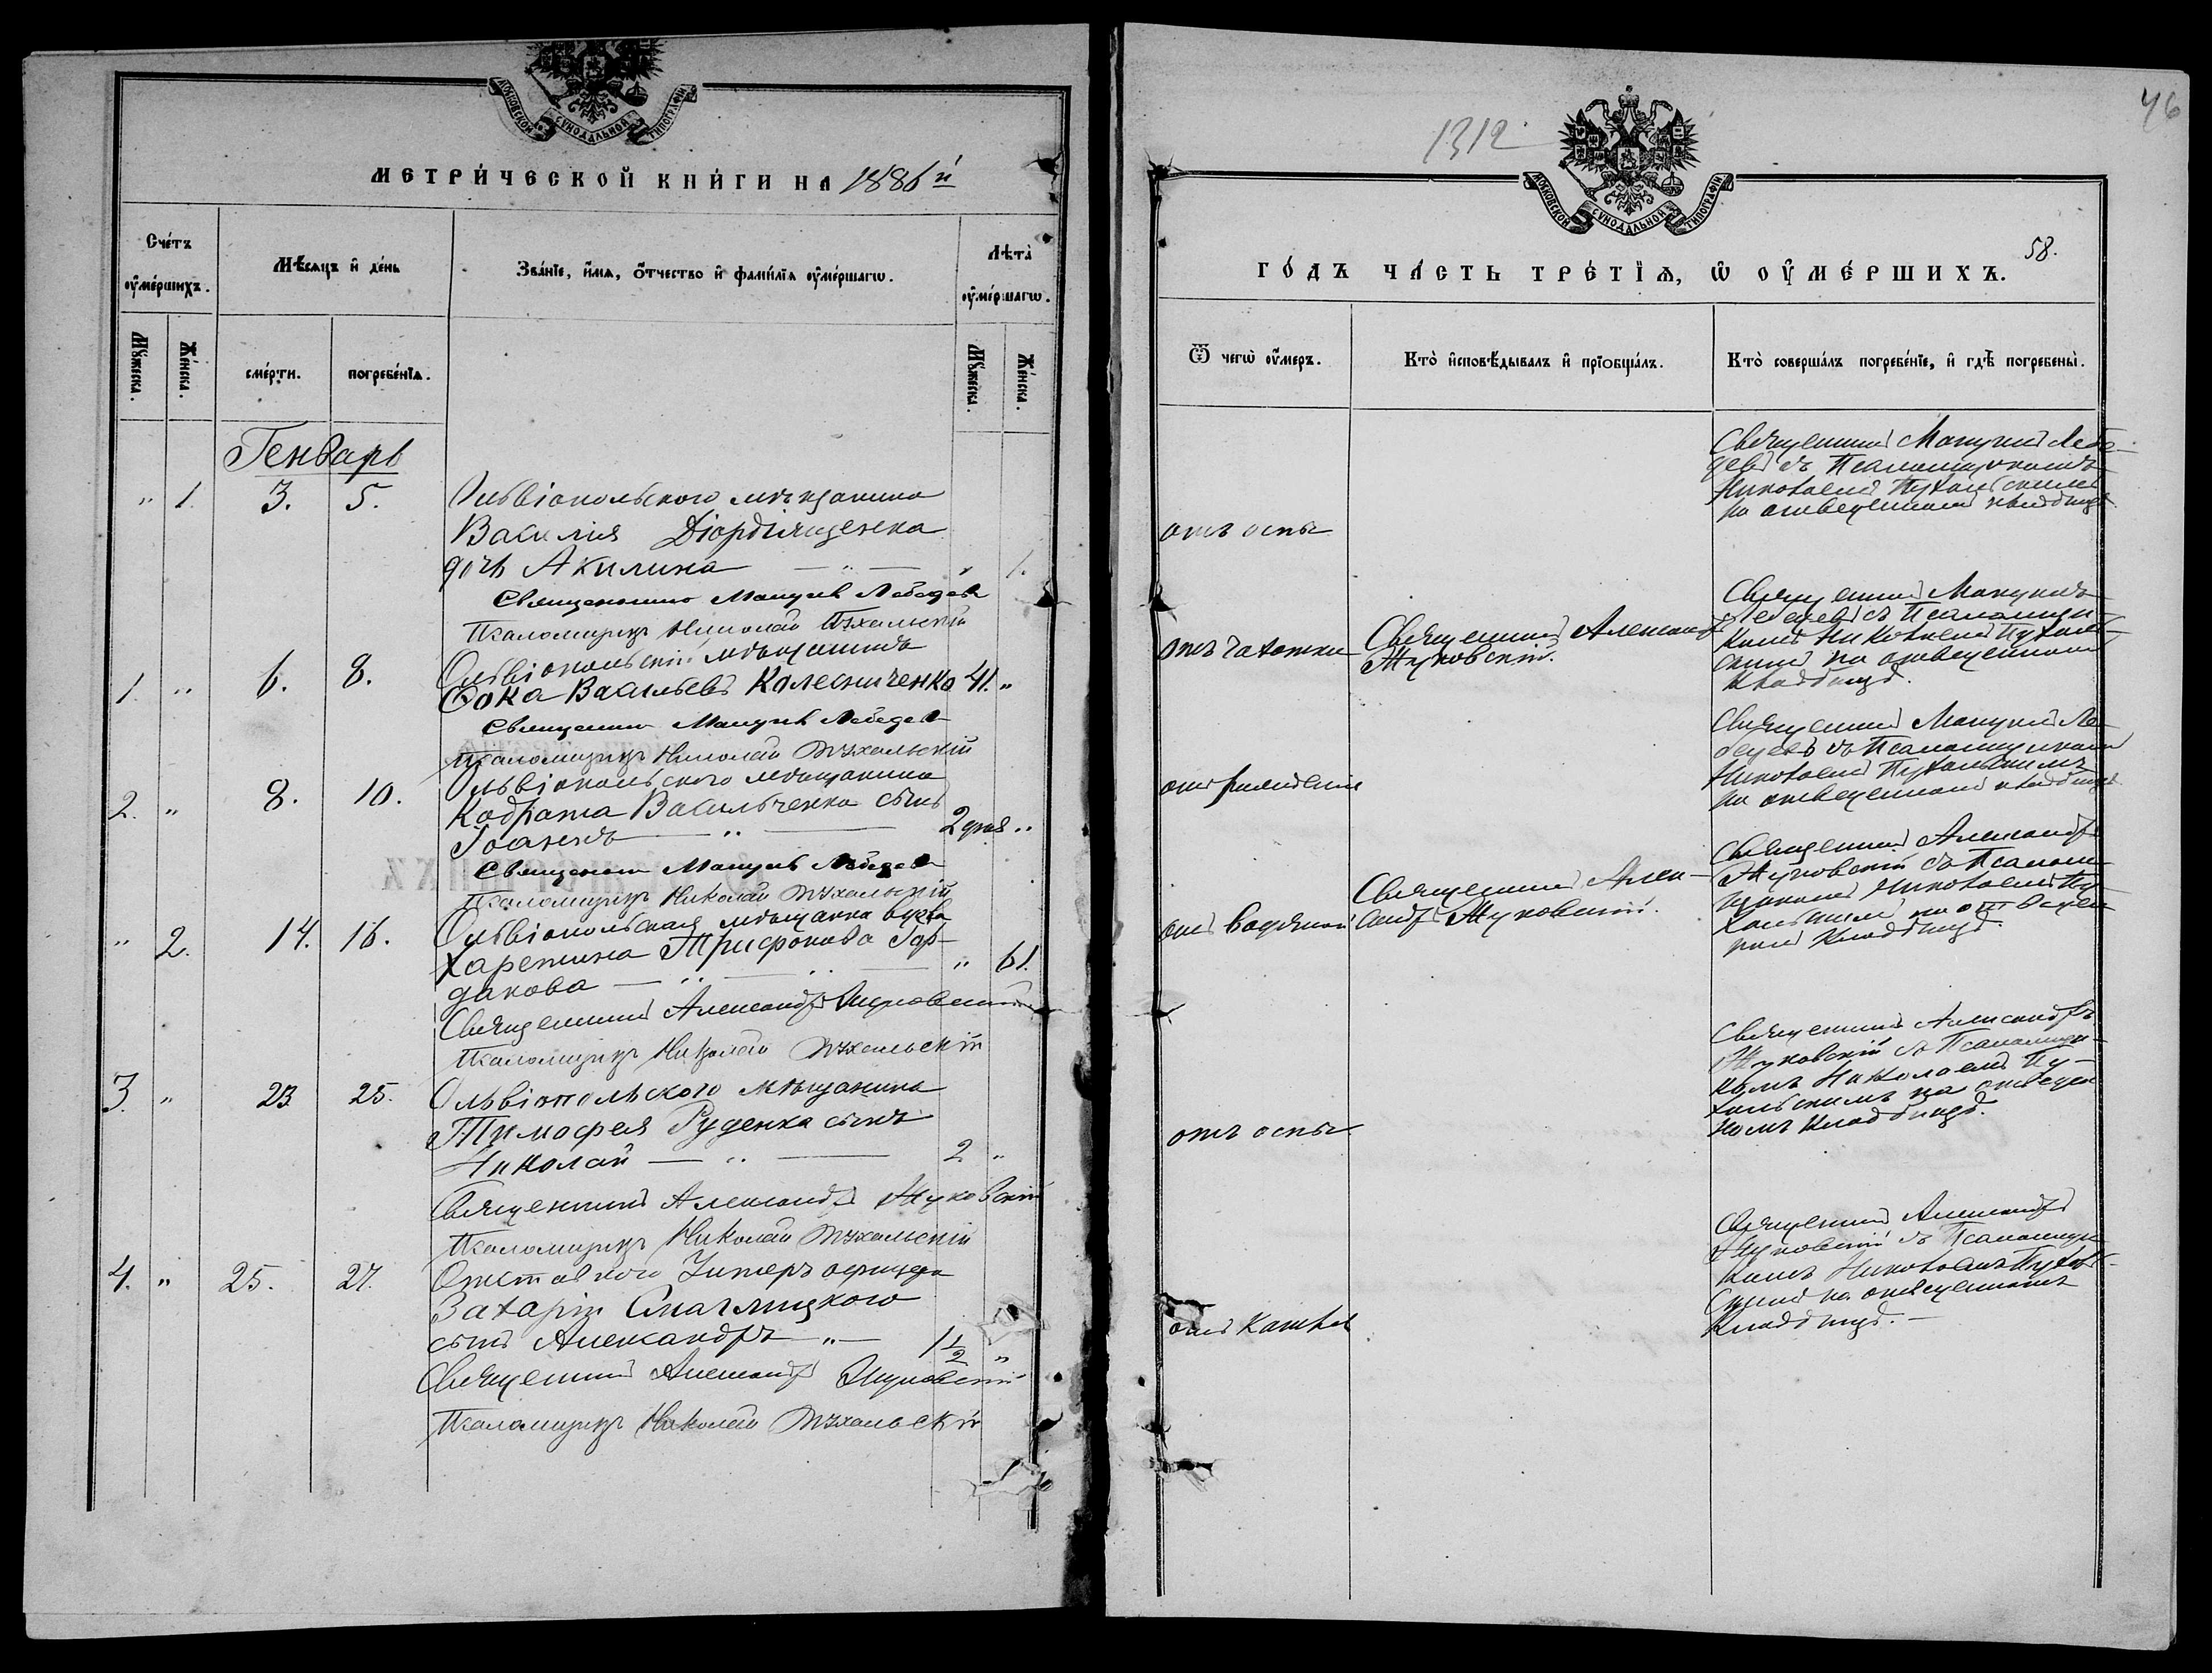 МОСКОВСКОЙ СѴНОДАЛЬНОЙ ТИПОГРАФІИ
МЕТРИ́ЧЕСКОЙ КНИ́ГИ НА 1886 й
Сче́тъ ᲂу҆ме́ршихъ.
Мѣ́сяцъ и҆ де́нь
Зва́нїе, и҆́мя, ѻ҆́тчество и҆ фами́лїя ᲂу҆ме́ршагѡ.
Лѣ́та ᲂу҆ме́ршагѡ.
Мꙋ́жеска.
Же́нска.
сме́рти.
погребе́нїя.
Мꙋ́жеска.
Же́нска.
Генварь
" 1. 3. 5. Ольвіопольского мѣщанина
Василія Діордіященка
дочь Акилина — " — " 1.
Священникъ Мануилъ Лебедевъ
Псаломщикъ Николай Пухальскій
1. " 6. 8. Ольвіопольскій мѣщанинъ
Ѳока Васильевъ Колесниченко 41. "
Священникъ Мануилъ Лебедевъ
Псаломщикъ Николай Пухальскій
2. " 8. 10. Ольвіопольского мѣщанина
Кодрата Васильченка сынъ
Іоаннъ — " — 2 дня "
Священникъ Мануилъ Лебедевъ
Псаломщикъ Николай Пухальскій
" 2. 14. 16. Ольвіопольская мѣщанка вдова
Харетина Трифонова Гор-
дакова — " — " — " 61.
Священникъ Александръ Жуковскій
Псаломщикъ Николай Пухальскій
3. " 23 25. Ольвіопольского мѣщанина
Тимофея Руденка сынъ
Николай — " — 2 "
Священникъ Александръ Жуковскій
Псаломщикъ Николай Пухальскій
4. " 25. 27. Отставного Унтеръ офицера
Захаріи Смаглицкого
сынъ Александръ — " — 1 1/2 "
Священникъ Александръ Жуковскій
Псаломщикъ Николай Пухальскій
46
1312
МОСКОВСКОЙ СѴНОДАЛЬНОЙ ТИПОГРАФІИ
58.
ГО́ДЪ ЧА́СТЬ ТРЕ́ТЇЯ, Ѡ҆ ОУ҆МЕ́РШИХЪ.
Ѿ чегѡ̀ ᲂу҆́меръ.
Кто̀ и҆сповѣ́дывалъ и҆ прїѡбща́лъ.
Кто̀ соверша́лъ погребе́нїе, и҆ гдѣ̀ погребены̀.
отъ оспы
Священникъ Мануилъ Лебе-
девъ съ Псаломщикомъ
Николаемъ Пухальскимъ
на отведенномъ кладбищѣ
отъ чахотки
Священникъ Александръ
Жуковскій.
Священникъ Мануилъ
Лебедевъ съ Псаломщи-
комъ Николаемъ Пухаль-
скимъ на отведенномъ
кладбищѣ.
Священникъ Мануилъ Ле-
бедевъ съ Псаломщикомъ
Николаемъ Пухальскимъ
на отведенномъ кладбищѣ
отъ водяной
Священникъ Алек-
сандръ Жуковскій.
Священникъ Александръ
Жуковскій съ Псалом-
щикомъ Николаемъ Пу-
хальскимъ на отведен-
номъ кладбищѣ.
отъ оспы
Священникъ Александръ
Жуковскій съ Псаломщи-
комъ Николаемъ Пу-
хальскимъ на отведен
номъ кладбищѣ.
отъ кашля
Священникъ Александръ
Жуковскій съ Псаломщи
комъ Николаемъ Пухаль-
скимъ на отведенномъ
кладбищѣ. —